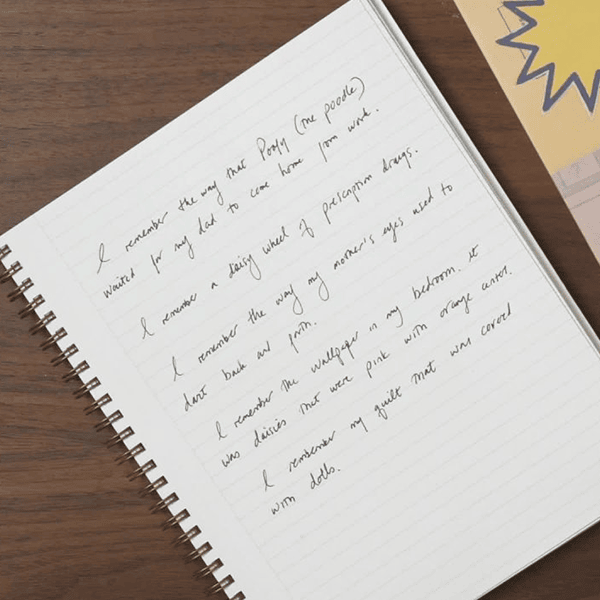 I remember the way that Poofy (the poodle)
waited for my dad to come home from work.
I remember a daisy wheel of prescription drugs.
I remember the way my mother's eyes used to
dart back and forth.
I remember the wallpaper in my bedroom. it
was daisies that were pink with orange
I remember my quilt that was covered
with dolls.